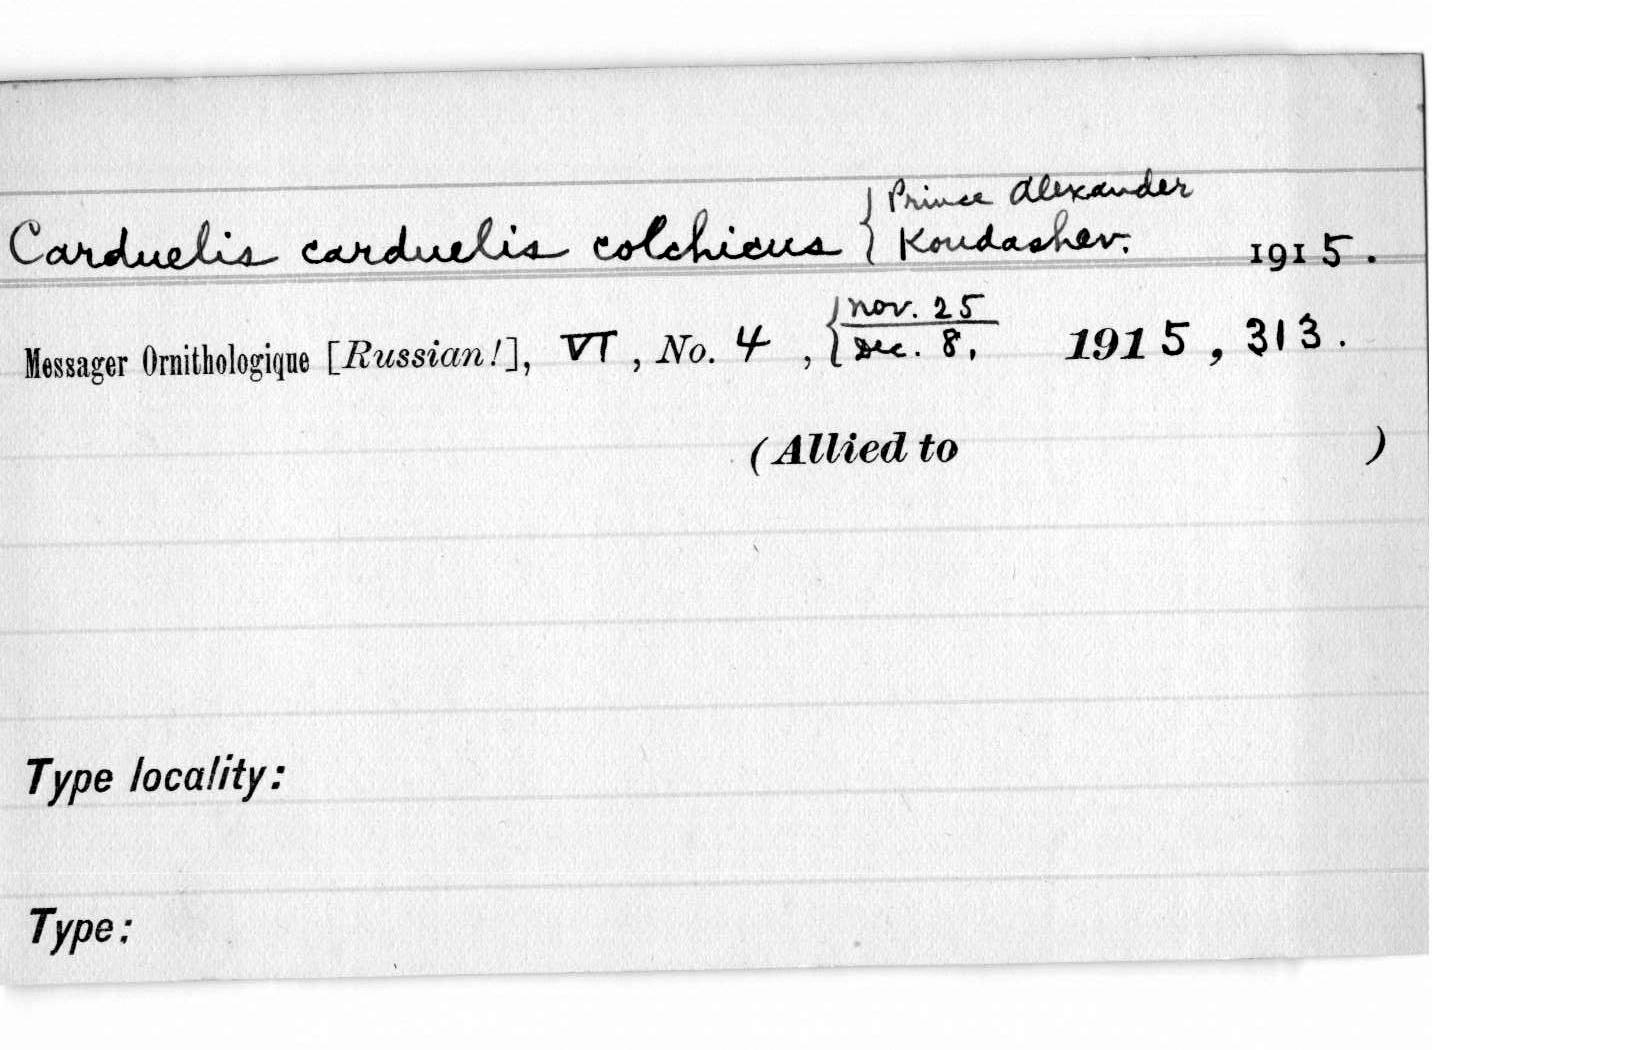 Carduelis carduelis colchicus { Prince Alexander Koudashev. 1915.
Messager Ornithologique [Russian!], VI, No. 4, { Nov. 25 / Dec. 8, 1915, 313.
(Allied to )
Type locality:
Type: